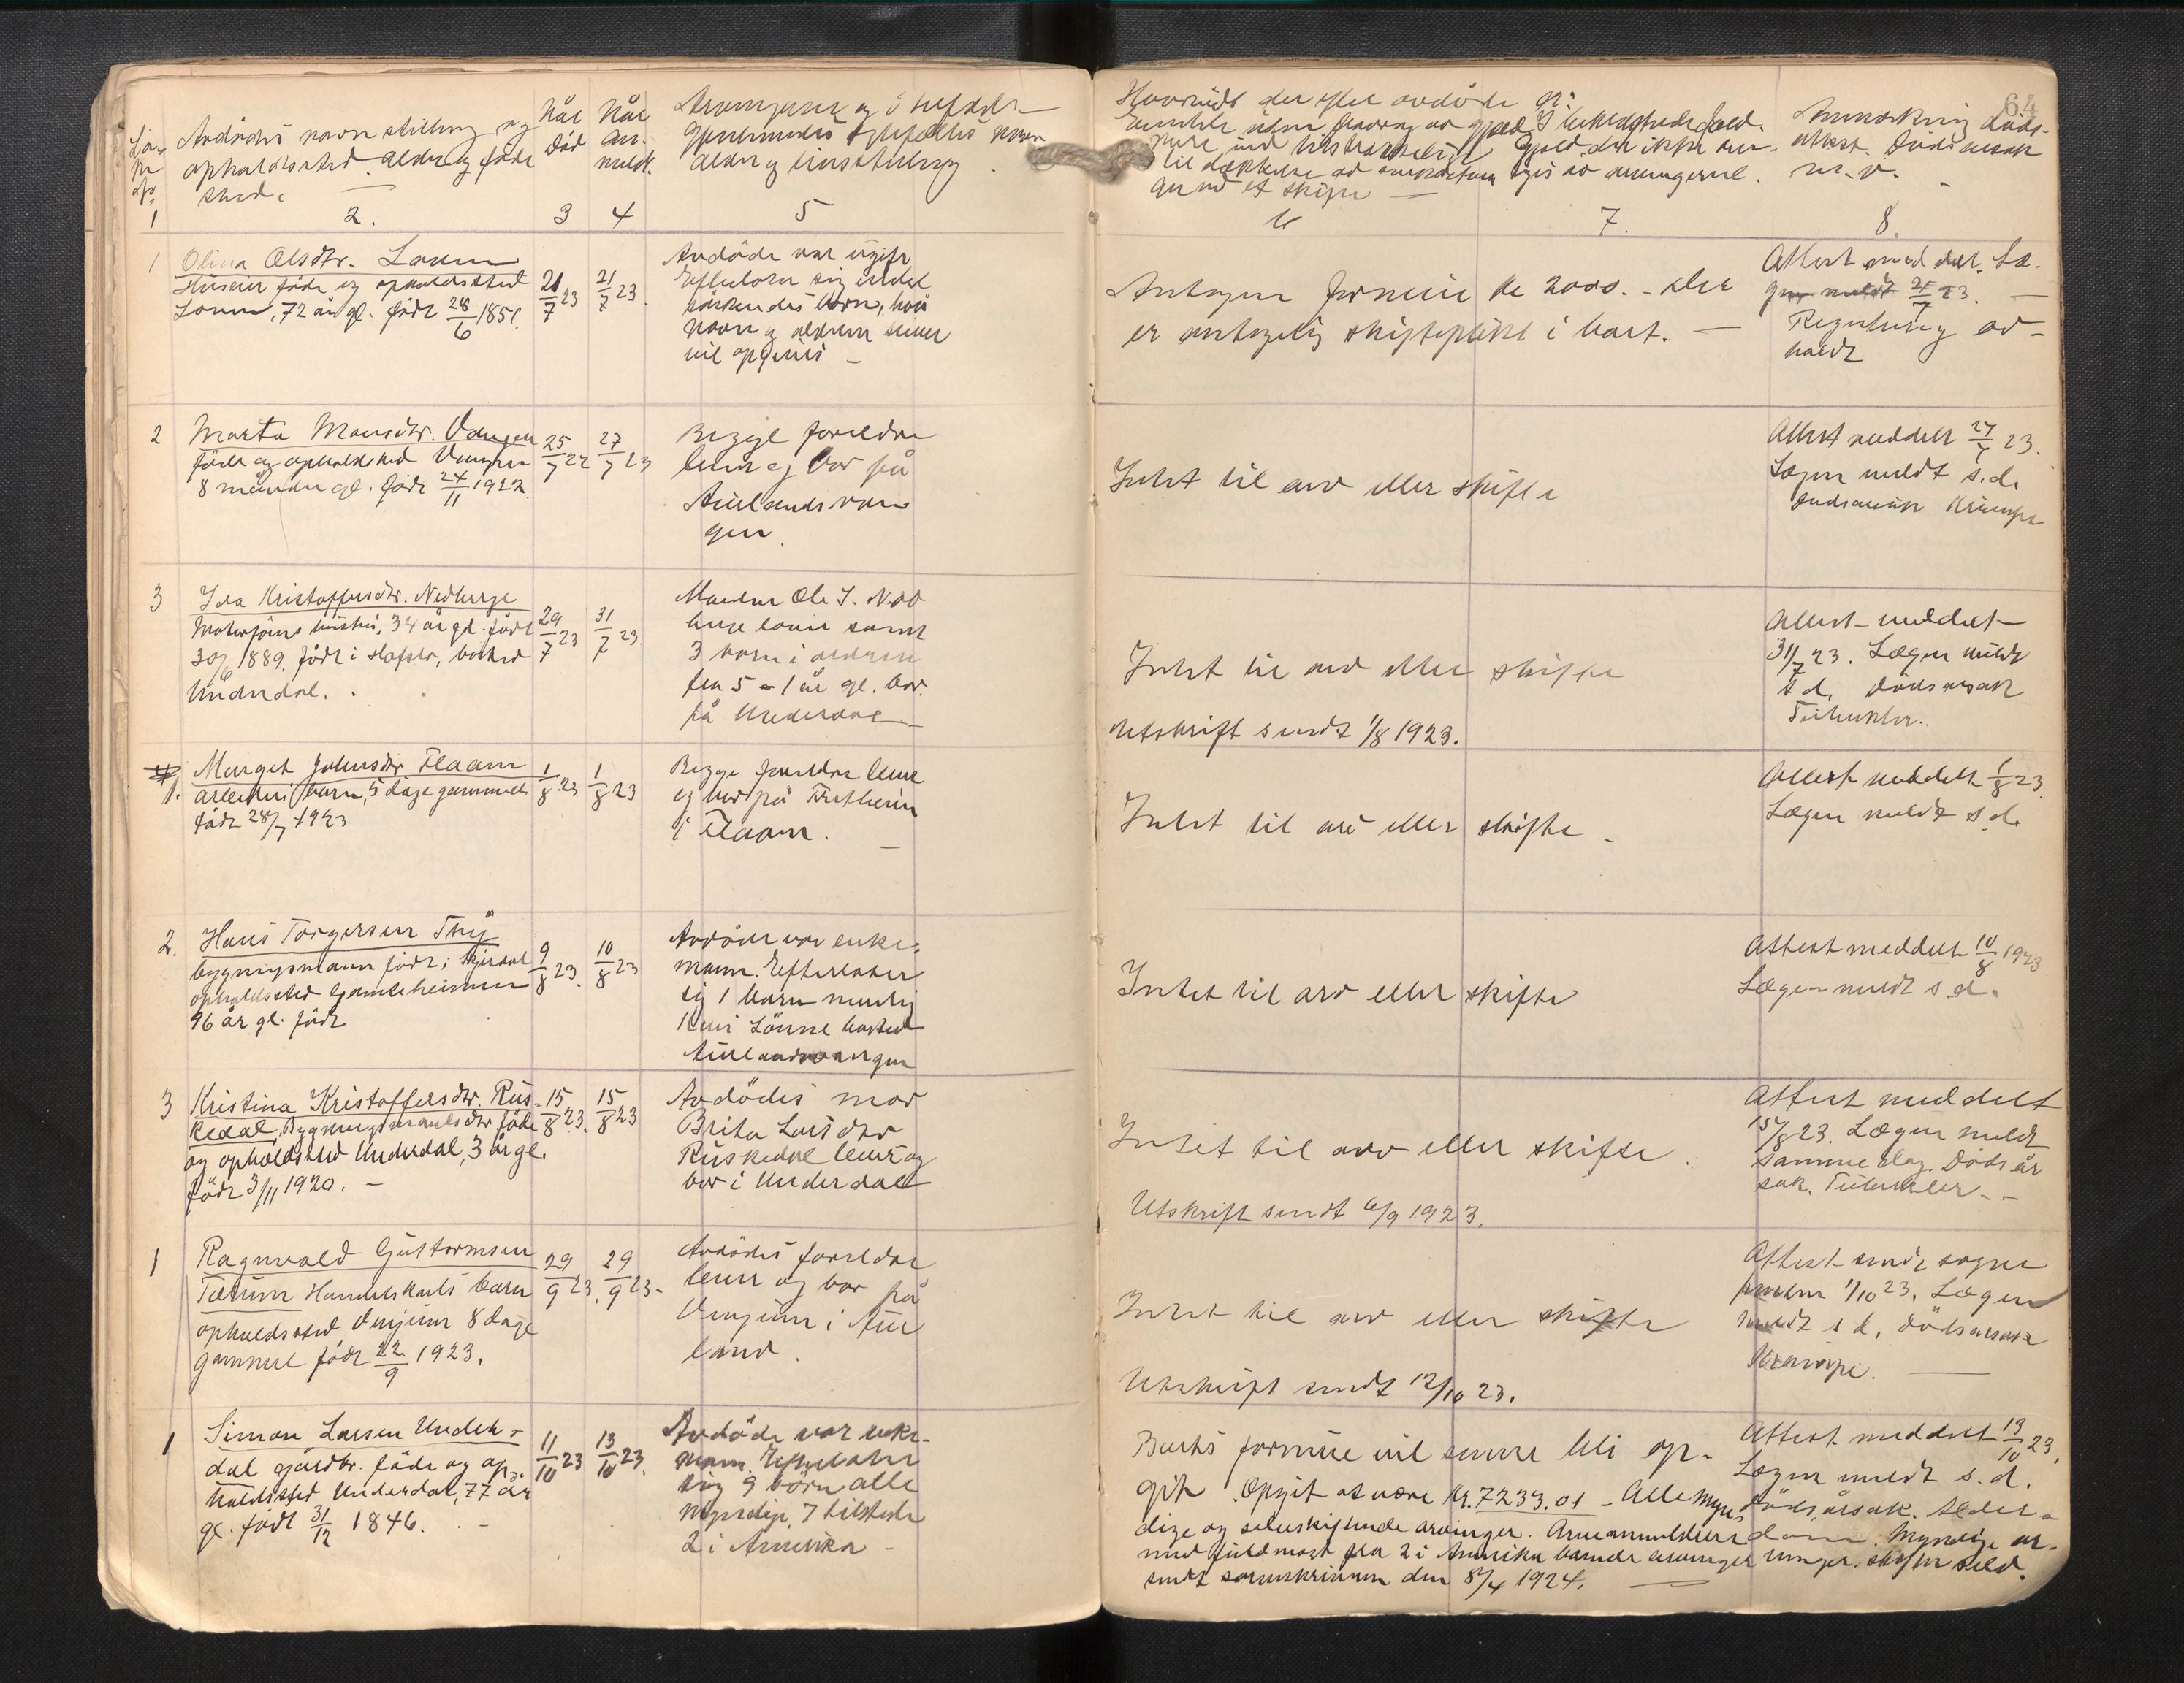 64
Avdødes navn stilling og
opholdssted. alder og føde
sted.
Når
død
Når
an-
meldt.
Arvingenes og
navn
alder og
Hvorvidt der efter avdøde er:
Anmerkning Døds-
attest. Dødsaarsak
m.v.
1
2.
3
4
5
6
7.
8.
1
Olina Olsdtr.
føde og opholdssted
72 år gl. født 28/6 1851.
21/7 23
21/7 23.
Avdøde var ugift
Efterlater sig endel
søskendes børn, hvis
navn og alderen senere
vil opgives –
Antagen formue kr 2000. – Der
er antagelig skiftepligt i boet. –
Attest meddelt. Læ-
gen meldt 21/7 23. –
2
Marta Monsdtr. Vangen
føde og opholdssted Vangen
8 måneder gl. født 24/11 1922
25/7 22
27/7 23
Begge foreldre
lever og bor på
Aurlandsvan
gen.
Intet til arv eller skifte
Attest meddelt 27/7 23.
Lægen meldt s.d.
Dødsaarsak Krampe
3
Ida Kristoffersdtr. Nedberge
hustru, 34 år gl. født
30/6 1889. født i Hafslo, bosted
Underdal.
29/7 23
31/7 23.
Manden Ole J. Ned
berge lever samt
3 barn i alderen
fra 5 – 1 år gl. bor
på Underdal –
Intet til arv eller skifte
Utskrift sendt 1/8 1923.
Attest meddelt
31/7 23. Lægen meldt
s d. Dødsarsak
Tuberkler.
4
1.
Marget Johnsdtr Flaam
arbeiders barn, 5 dage gammel
født 28/7 1923
1/8 23
1/8 23
Begge foreldre lever
og bor på Fretheim
i Flaam. –
Intet til arv eller skifte –
Attest meddelt 1/8 23.
Lægen meldt s d.
2.
Hans Torgersen
bygningsmann født i
opholdssted Gamleheimen
96 år gl. født
9/8 23.
10/8 23
Avdøde var enke-
mann. Efterlater
sig 1 barn nemlig
bosted
Aurlandsvangen
Intet til arv eller skifte
Attest meddelt 10/8 1923
Lægen meldt s.d.
3
Kristina Kristoffersdtr. Rus-
kedal, Bygningsmandsdtr føde
og opholdssted Underdal, 3 år gl.
født 3/11 1920. –
15/8 23.
15/8 23
Avdødes mor
Brita Larsdtr
Ruskedal lever og
bor i Underdal
Intet til arv eller skifte.
Utskrift sendt 6/9 1923.
Attest meddelt
15/8 23. Lægen meldt
samme dag. Dødsår
sak. Tuberkler. –
1
Ragnvald Guttormsen
Tærum Handelskarls barn
opholdssted Vinjum 8 dage
gammel født 22/9 1923.
29/9 23.
29/9 23.
Avdødes foreldre
lever og bor på
Vinjum i Aur
land.
Intet til arv eller skifte
Utskrift sendt 12/10 23.
Attest sendt sogne
presten 1/10 23. Lægen
meldt s d. Dødsarsak
Krampe. –
1
Simon Larsen Under-
dal gårdbr. føde og op-
holdssted Underdal, 77 år
gl. født 31/12 1846. –
11/10 23
13/10 23.
Avdøde var enke-
mann. Efterlater
sig 9 børn alle
myndige, 7 tilstede
2 i Amerika –
Boets formue vil senere bli op-
git. Opgit at være kr. 7233.01 – Alle myn-
dige og selvskiftende arvinger. Arveanmeldelse
med fuldmagt fra 2 i Amerika boende arvinger
sendt sorenskriveren den 8/4 1924. –
Attest meddelt 13/10 23.
Lægen meldt s.d.
Dødsårsak. Alder-
dom. Myndige ar-
vinger. skifter selv.